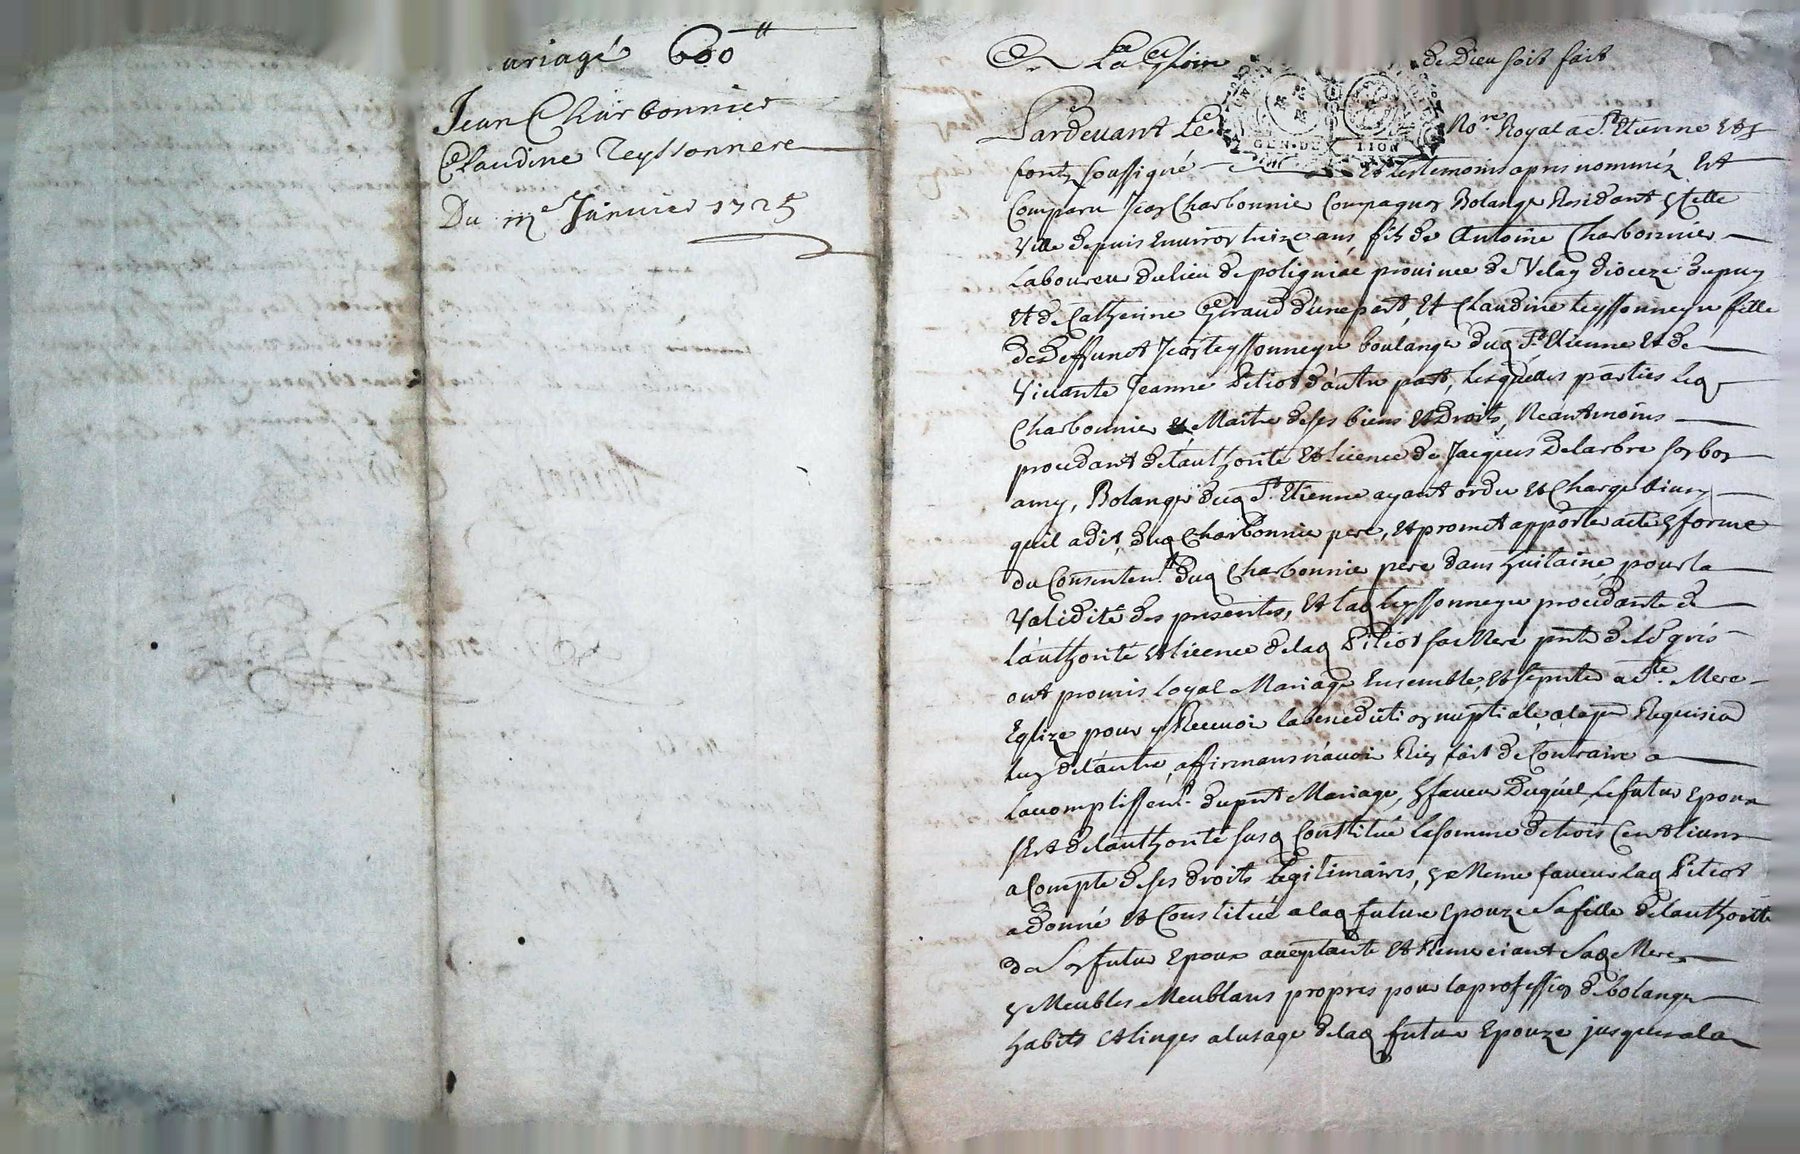 ariagé 600tt
Jean Charbonnier
Claudine Teyssonnere
Du me Janvier 1725
A La Gloire de Dieu soit fait
Pardevant Le Nore Royal a St Etienne
GEN. DE TION
soussigné Et les temoins apres nomméz Est
Comparu Jean Charbonnier Compagnon Bolanger Residant en Cette
Ville depuis Environ treize ans fils de Antoine Charbonnier
Laboureur du lieu de poligniac province de Velay dioceze du puy
Et de Catherine Geraud d'une part, Et Claudine teyssonneyre fille
de deffunct Jean teyssonneyre boulanger dud St Etienne Et de
Vivante Jeanne Petiot d'autre part, lesquelles parties led
Charbonnier Maitre de ses biens Et Droits, Neantmoins
procedant de l'authorité Et licence de Jacques Delarbre son bon
amy, Bolanger dud St Etienne ayant ordre Et Charge
quil a dit, dud Charbonnier pere, Et promet apporter acte en forme
du Consentent dud Charbonnier pere dans huitaine, pour la
Validité des presentes, Et lad teyssonneyre procedante de
l'authorité Et licence de lad Petiot sa Mere pnte de leurs grés
ont promis loyal Mariage Ensemble, Et se pnter a Ste Mere
Eglize pour y Recevoir la benediction nuptiale, a la pre Requision
lun de l'autre, affirmans n'avoir Rien fait de Contraire a
l'accomplissent du pnt Mariage, en faveur Duquel, le futur Epoux
s'Est de l'authorité susd Constitué la somme de trois Cent livres
a Compte de ses droits Legitimaires, en Meme faveur lad Petiot
a donné et Constitué a lad future Epouze sa fille de l'authorité
de son futur Epoux acceptante Et Remerciant sad Mere
en Meubles Meublans propres pour la profession de bolanger
habits Et linges a lusage de lad future Epouze jusques a la